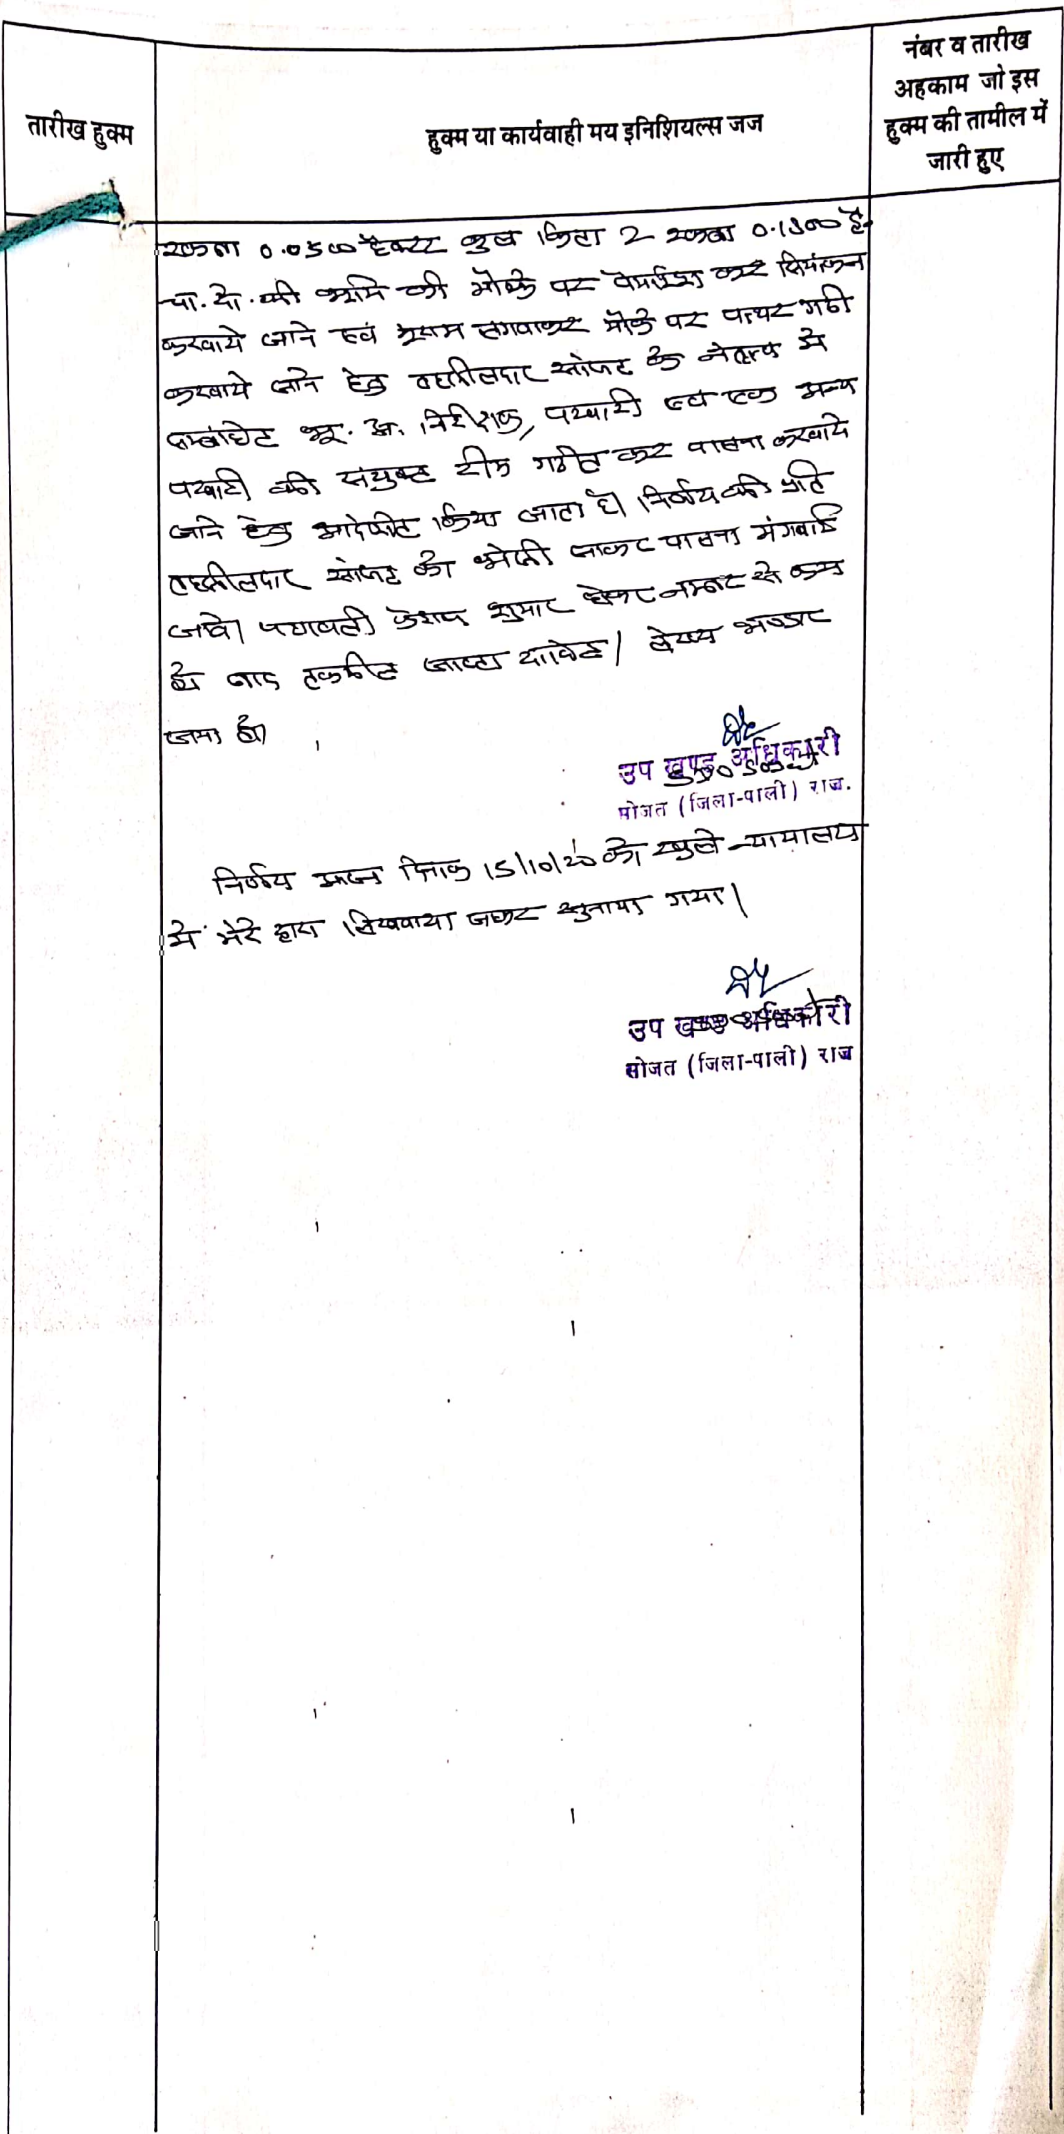 तारीख हुक्म
हुक्म या कार्यवाही मय इनिशियल्स जज
नंबर व तारीख
अहकाम जो इस
हुक्म की तामील में
जारी हुए
रकबा 0.0500 हैक्टर कुल किता 2 रकबा 0.1300 है.
चा. दो. की भूमि की मौके पर पैमाईश कर सिमांकन
करवाये जाने एवं लगवाकर मौके पर पत्थर गढी
करवाये जाने हेतु तहसीलदार सोजत के नेतृत्व मे
सम्बंधित भू. अ. निरीक्षक, पटवारी एवं एक अन्य
पटवारी की संयुक्त टीम गठीत कर पालना करवाये
जाने हेतु आदेशीत किया जाता है। निर्णय की प्रति
तहसीलदार सोजत को भेजी जाकर पालना मंगवाई
जावे। पत्रावली फैसल शुमार होकर नम्बर से कम
हो बाद तकमील जाब्ता दाखिल
जमा हो।
उप खण्ड अधिकारी
सोजत (जिला-पाली) राज.
निर्णय आज दिनांक 15/10/20 को खुले न्यायालय
मे मेरे द्वारा लिखवाया जाकर सुनाया गया।
उप खण्ड अधिकारी
सोजत (जिला-पाली) राज